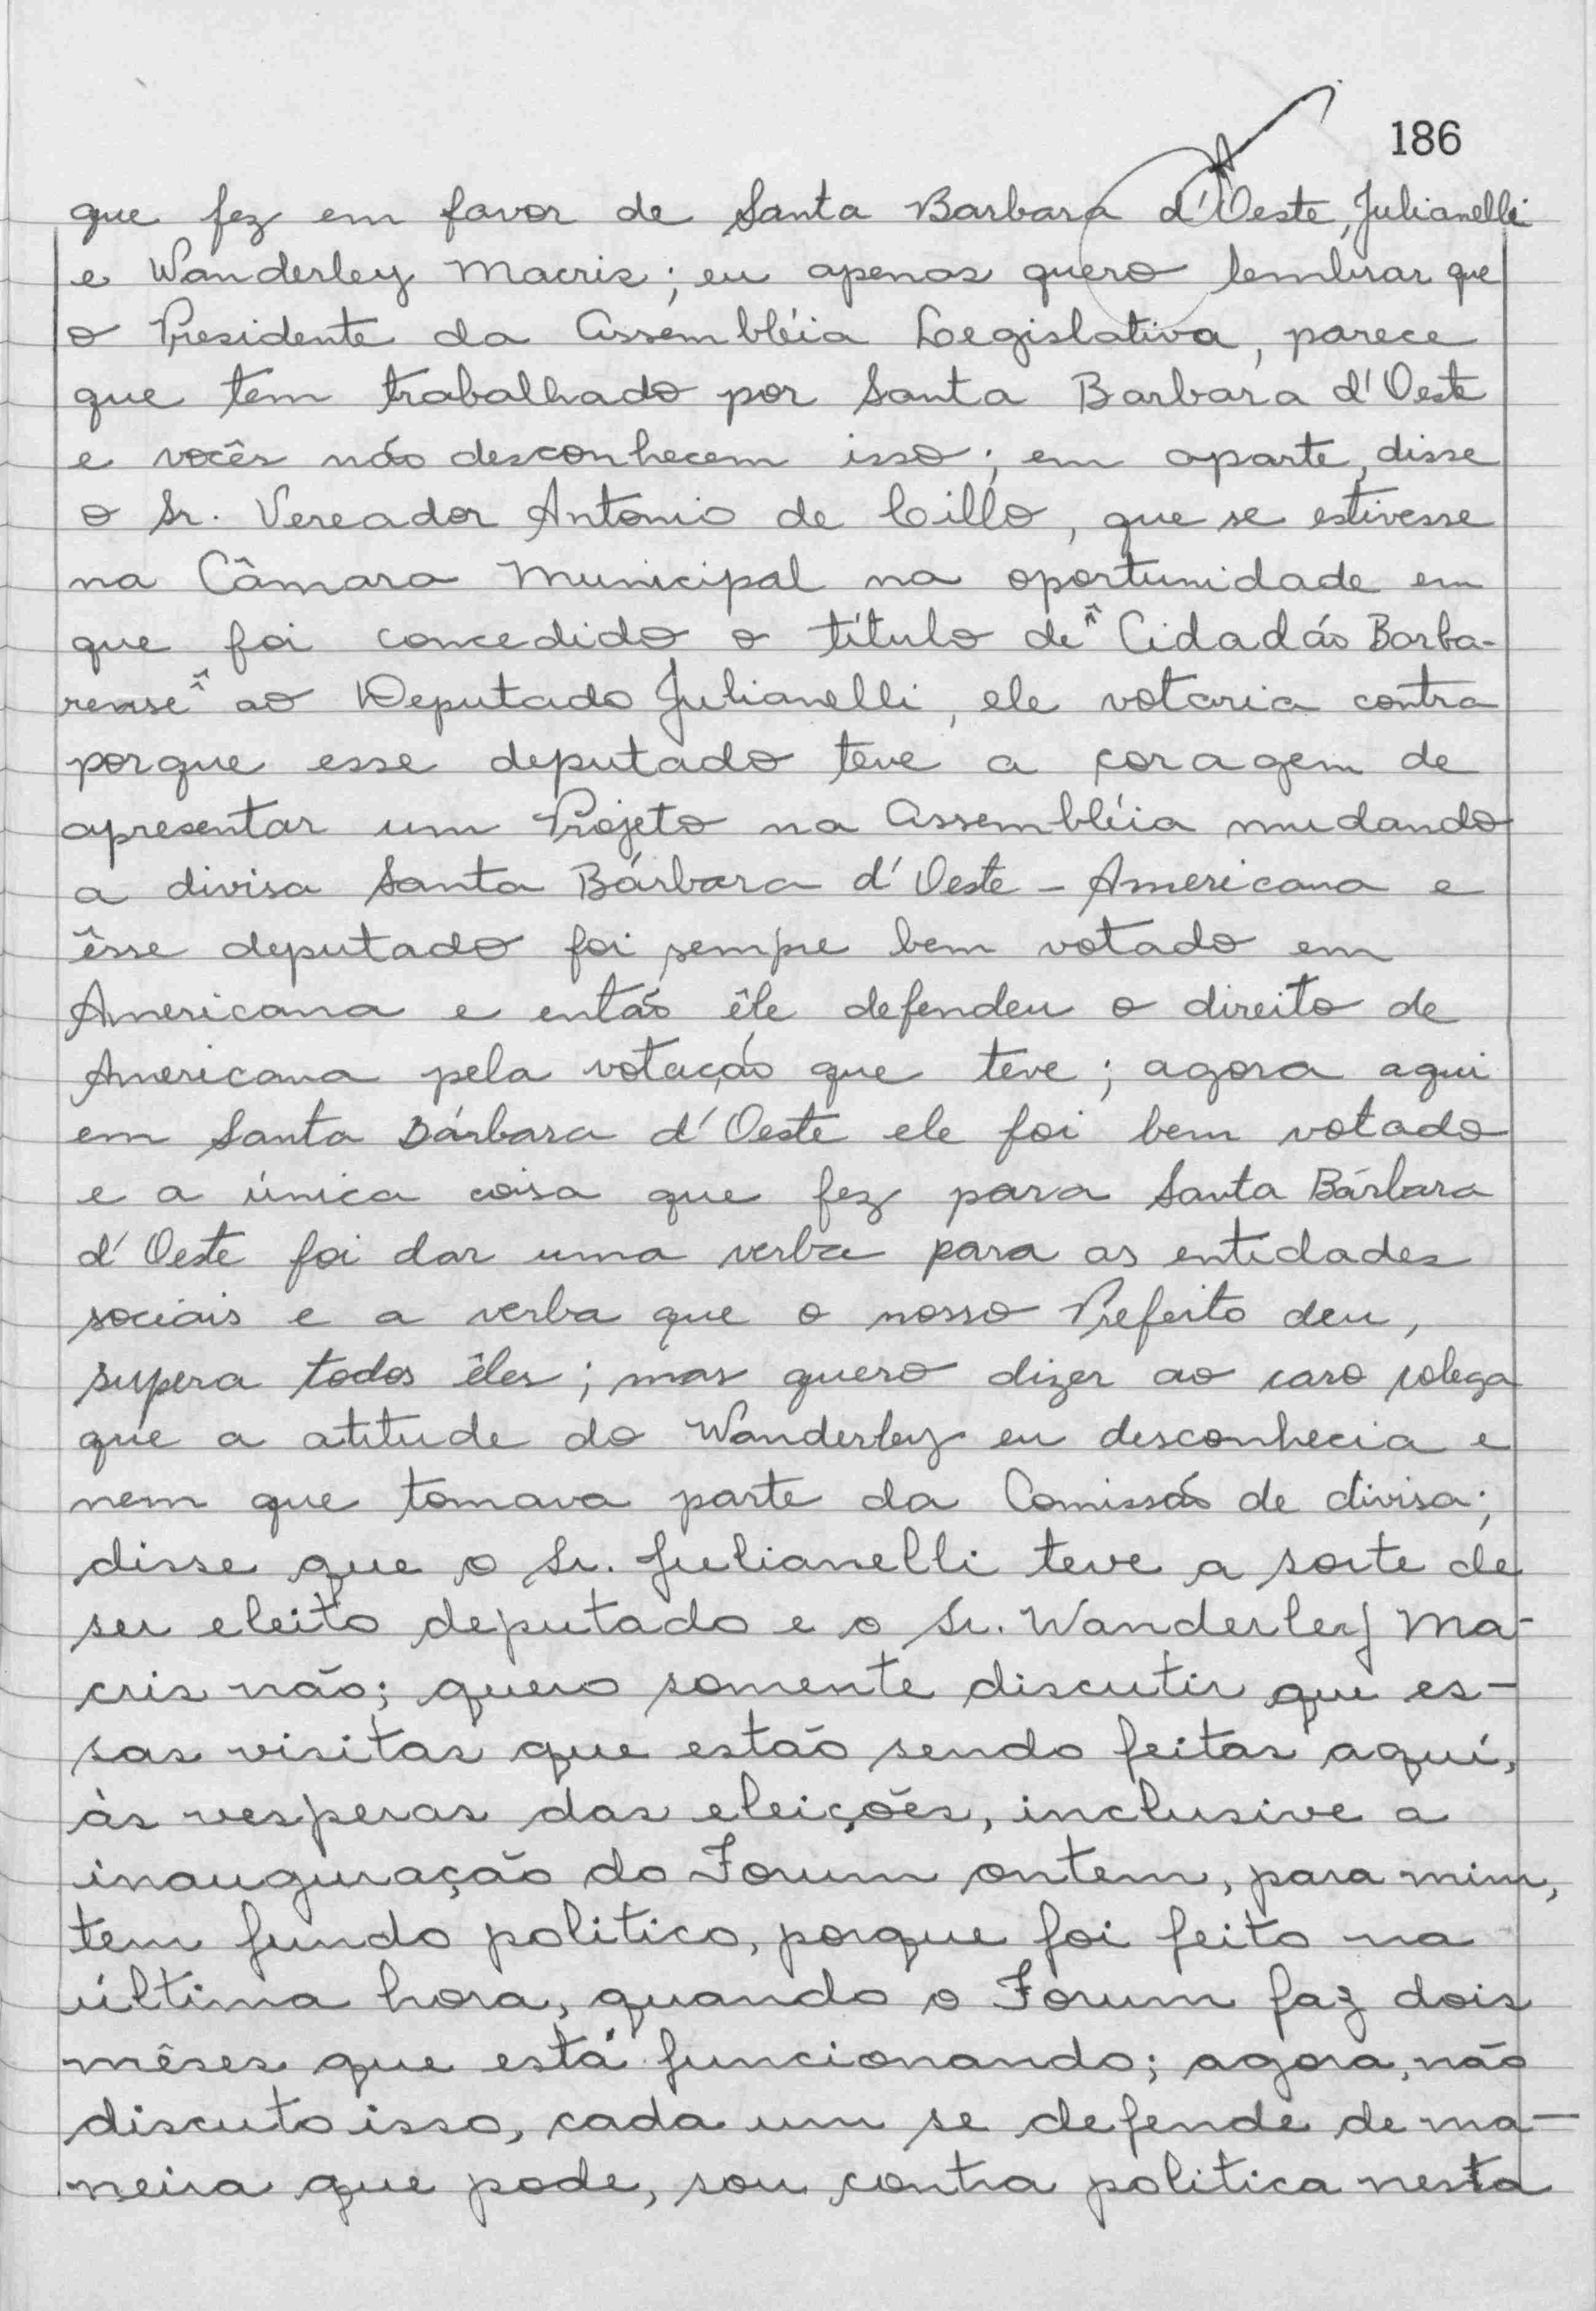 186
que fez em favor de Santa Barbara d'Oeste, Julianelli
e Wanderley Macris; eu apenas quero lembrar que
o Presidente da Assembléia Legislativa, parece
que tem trabalhado por Santa Barbara d'Oeste
e vocês não desconhecem isso; em aparte, disse
o Sr. Vereador Antonio de Cillo, que se estivesse
na Câmara Municipal na oportunidade em
que foi concedido o título de "Cidadão Barba-
rense" ao Deputado Julianelli, ele votaria contra
porque esse deputado teve a coragem de
apresentar um Projeto na Assembléia mudando
a divisa Santa Bárbara d'Oeste - Americana e
êsse deputado foi sempre bem votado em
Americana e então êle defendeu o direito de
Americana pela votação que teve; agora aqui
em Santa Bárbara d'Oeste ele foi bem votado
e a única coisa que fez para Santa Bárbara
d'Oeste foi dar uma verba para as entidades
sociais e a verba que o nosso Prefeito deu,
supera todos êles; mas quero dizer ao caro colega
que a atitude do Wanderley eu desconhecia e
nem que tomava parte da Comissão de divisa;
disse que o Sr. Julianelli teve a sorte de
ser eleito deputado e o Sr. Wanderley Ma-
cris não; quero somente discutir que es-
sas visitas que estão sendo feitas aquí,
às vesperas das eleições, inclusive a
inauguração do Forum ontem, para mim,
tem fundo politico, porque foi feito na
última hora, quando o Forum faz dois
mêses que está funcionando; agora, não
discuto isso, cada um se defende de ma-
neira que pode, sou contra politica nesta